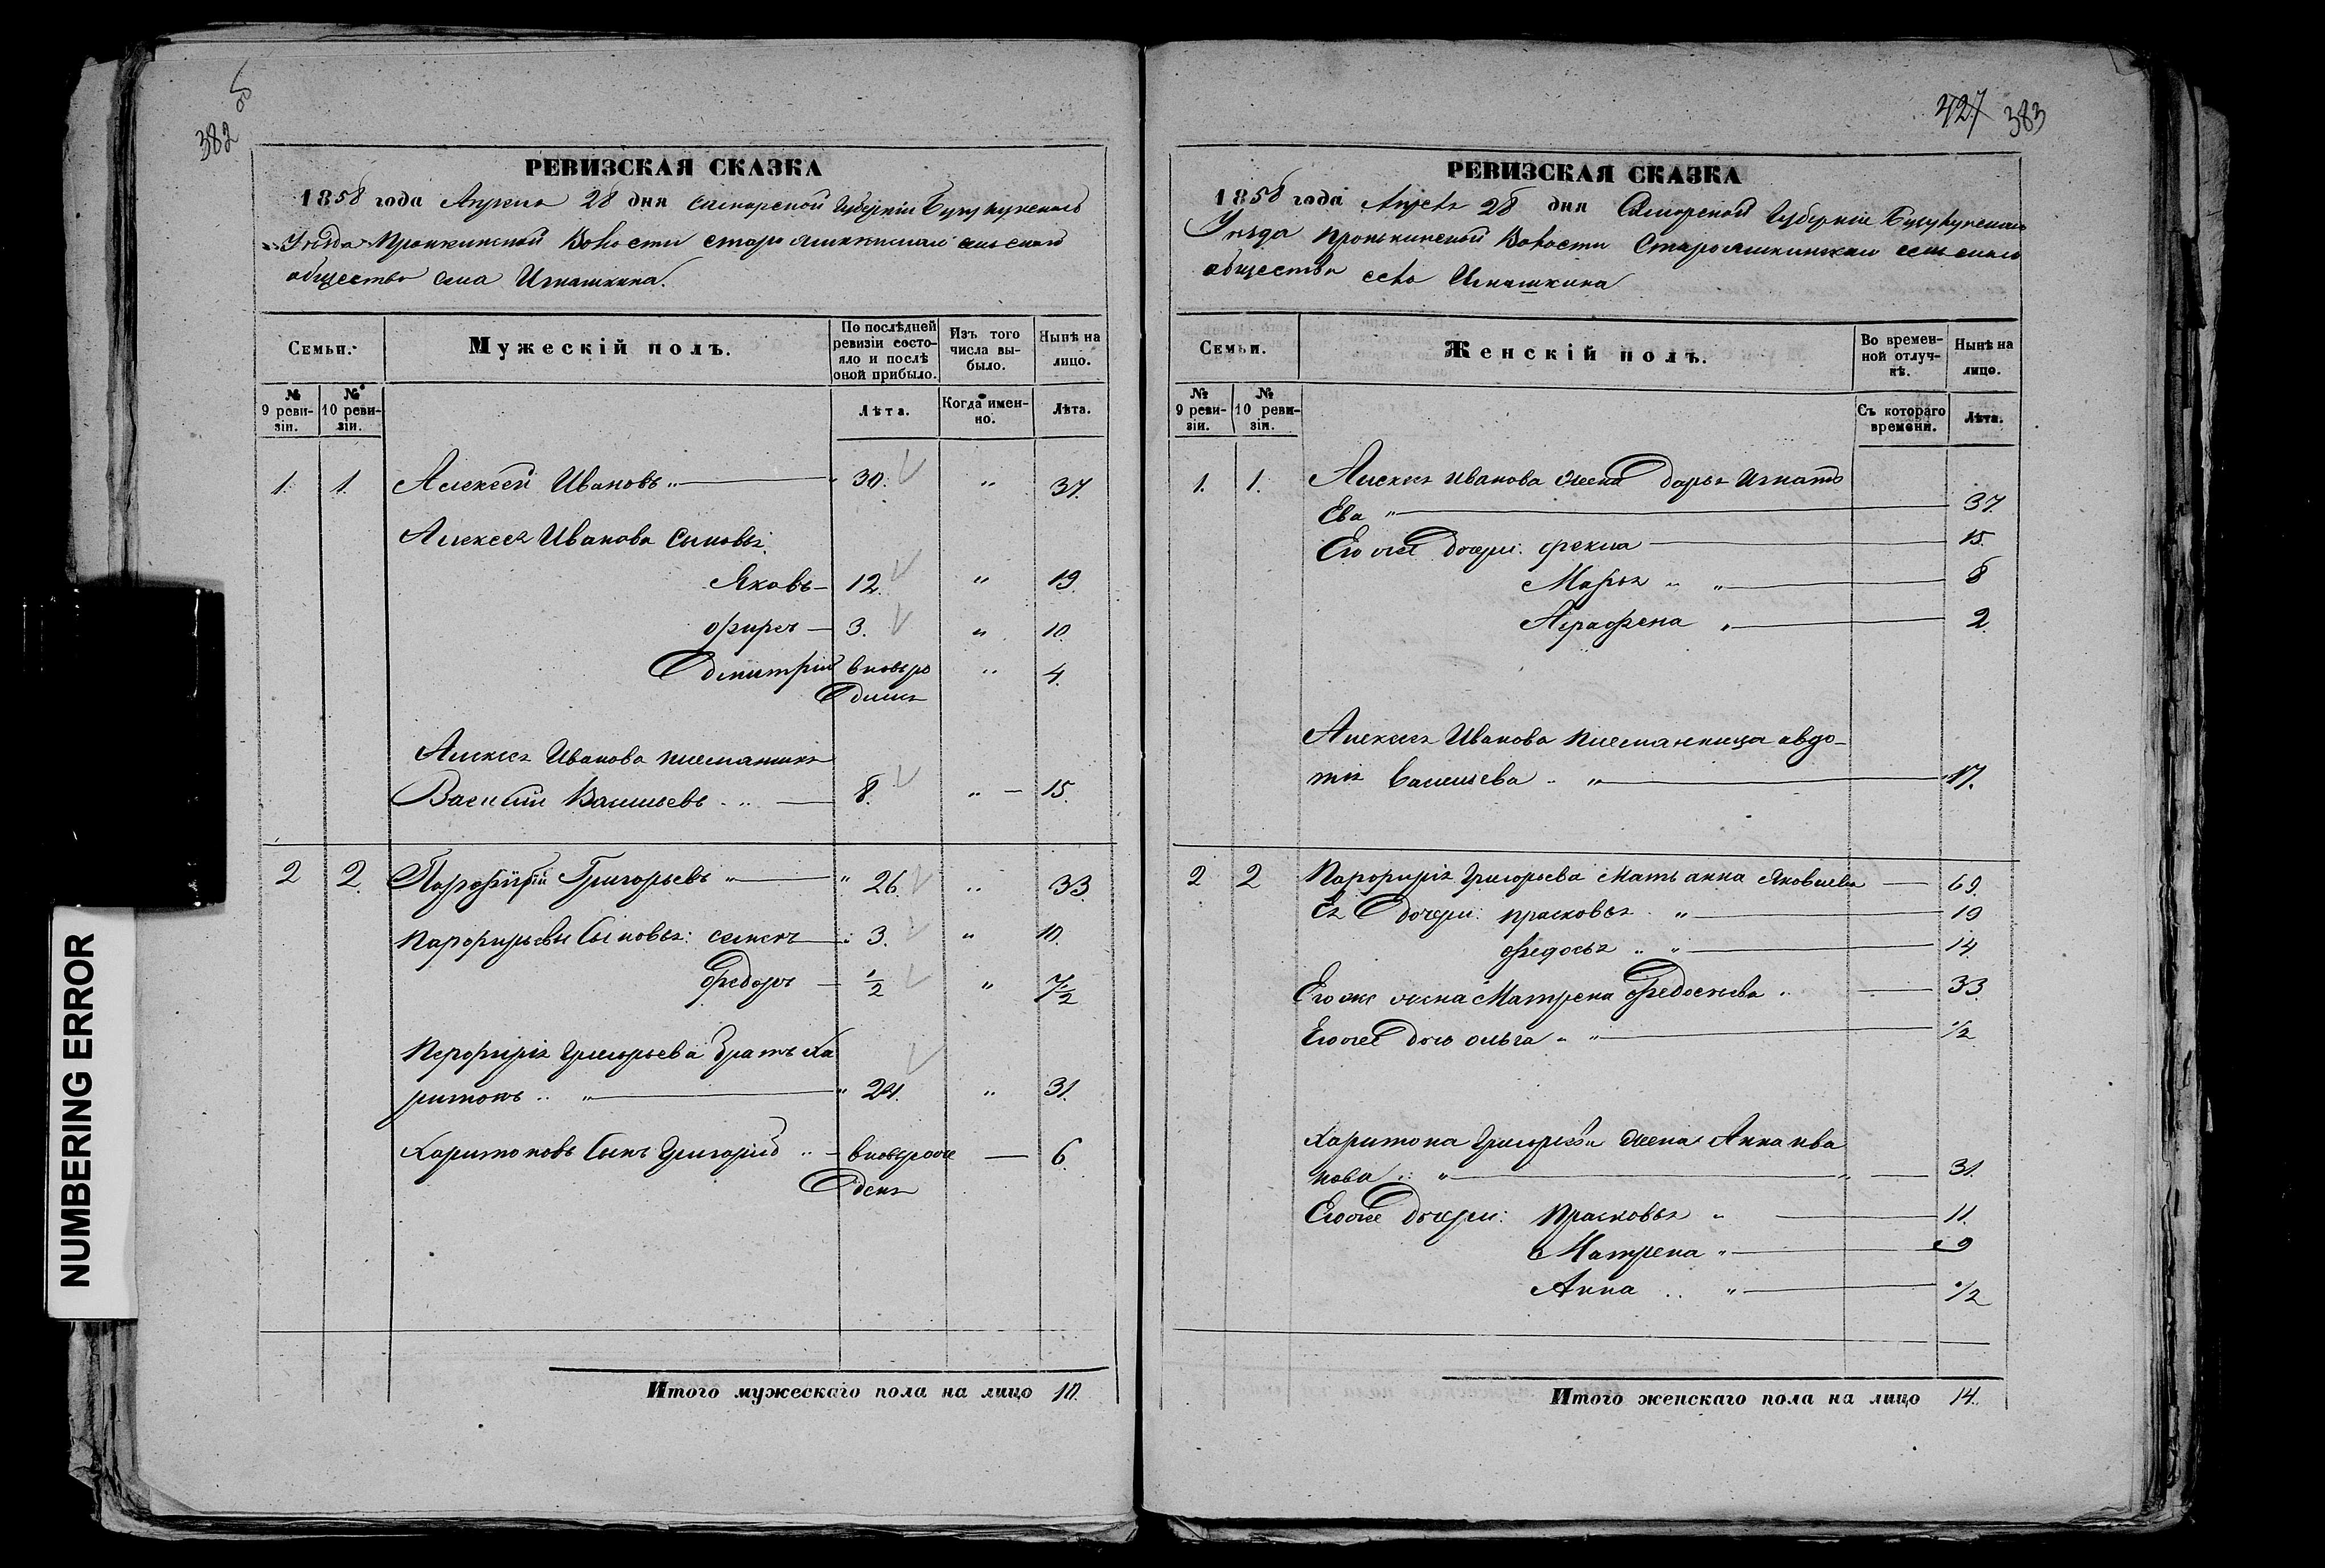 382 об
РЕВИЗСКАЯ СКАЗКА
1858 года Апреля 28 дня Самарской Губернiи Бузулукскаго
Уѣзда Пронкинской Волости Старо яшкинскаго сельскаго
общества села Игнашкина.
Семьи.
Мужескiй полъ.
По послѣдней ревизiи состояло и послѣ оной прибыло.
Изъ того числа выбыло.
Нынѣ на лицо.
№ 9 ревизiи.
№ 10 ревизiи.
Лѣта.
Когда именно.
Лѣта.
1. 1. Алексей Ивановъ „ 30. „ 37.
Алексея Иванова сыновья.
Яковъ 12. „ 19.
Фирсъ 3. „ 10.
Дмитрiй вновь ро „ 4.
дился
Алексея Иванова племянникъ
Василiй Васильевъ 8. „ 15.
2 2. Парфирiй Григорьевъ „ 26. „ 33.
Парфирьевы сыновья: Семенъ 3. „ 10.
Федоръ ½ „ 7½
Перфирiя Григорьева братъ Ха
ритонъ „ 24. „ 31.
Харитоновъ сынъ Григорiй вновьрож 6.
денъ
Итого мужескаго пола на лицо 10.
427 383
РЕВИЗСКАЯ СКАЗКА
1858 года Апреля 28 дня Самарской Губернiи Бузулукскаго
Уѣзда Пронькинской Волости Старояшкинскаго сельскаго
общества села Игнашкина
Семьи.
Женскiй полъ.
Во временной отлучкѣ.
Нынѣ на лицо.
№ 9 ревизiи.
№ 10 ревизiи.
Съ котораго времени.
Лѣта.
1. 1. Алексея Иванова жена Дарья Игнать
Ева „ 37.
Его же дочери: Фекла 15.
Марья „ 8
Аграфена „ 2.
Алексея Иванова племянница авдо-
тья Васильева „ 17.
2 2 Парфирiя Григорьева мать анна Яковлева 69.
Ея дочери: прасковья „ 19
Федосья „ 14.
Его же жена Матрена Федосеева 33.
Его же дочь ольга „ ½
Харитона Григорьева жена Анна ива
нова „ 31.
Его же дочери: Прасковья „ 11.
Матрена „ 9
Анна „ ½
Итого женскаго пола на лицо 14.
NUMBERING ERROR